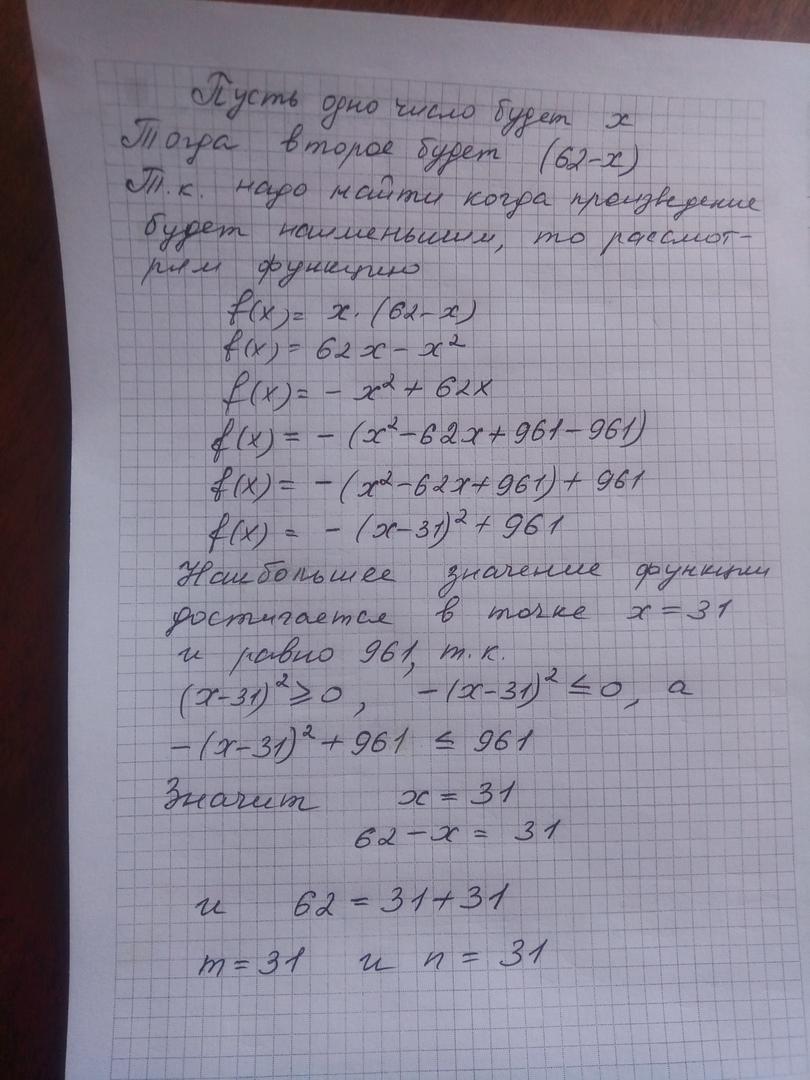 Пусть одно число будет x
Тогда второе будет (62-x)
Т.к. надо найти когда произведение
будет наименьшим, то рассмот-
рим функцию
f(x) = x·(62-x)
f(x) = 62x - x²
f(x) = - x² + 62x
f(x) = - (x² - 62x + 961 - 961)
f(x) = - (x² - 62x + 961) + 961
f(x) = - (x-31)² + 961
Наибольшее значение функции
достигается в точке x = 31
и равно 961, т.к.
(x-31)² ⩾ 0, -(x-31)² ≤ 0, а
-(x-31)² + 961 ≤ 961
Значит x = 31
62 - x = 31
и 62 = 31 + 31
m = 31 и n = 31